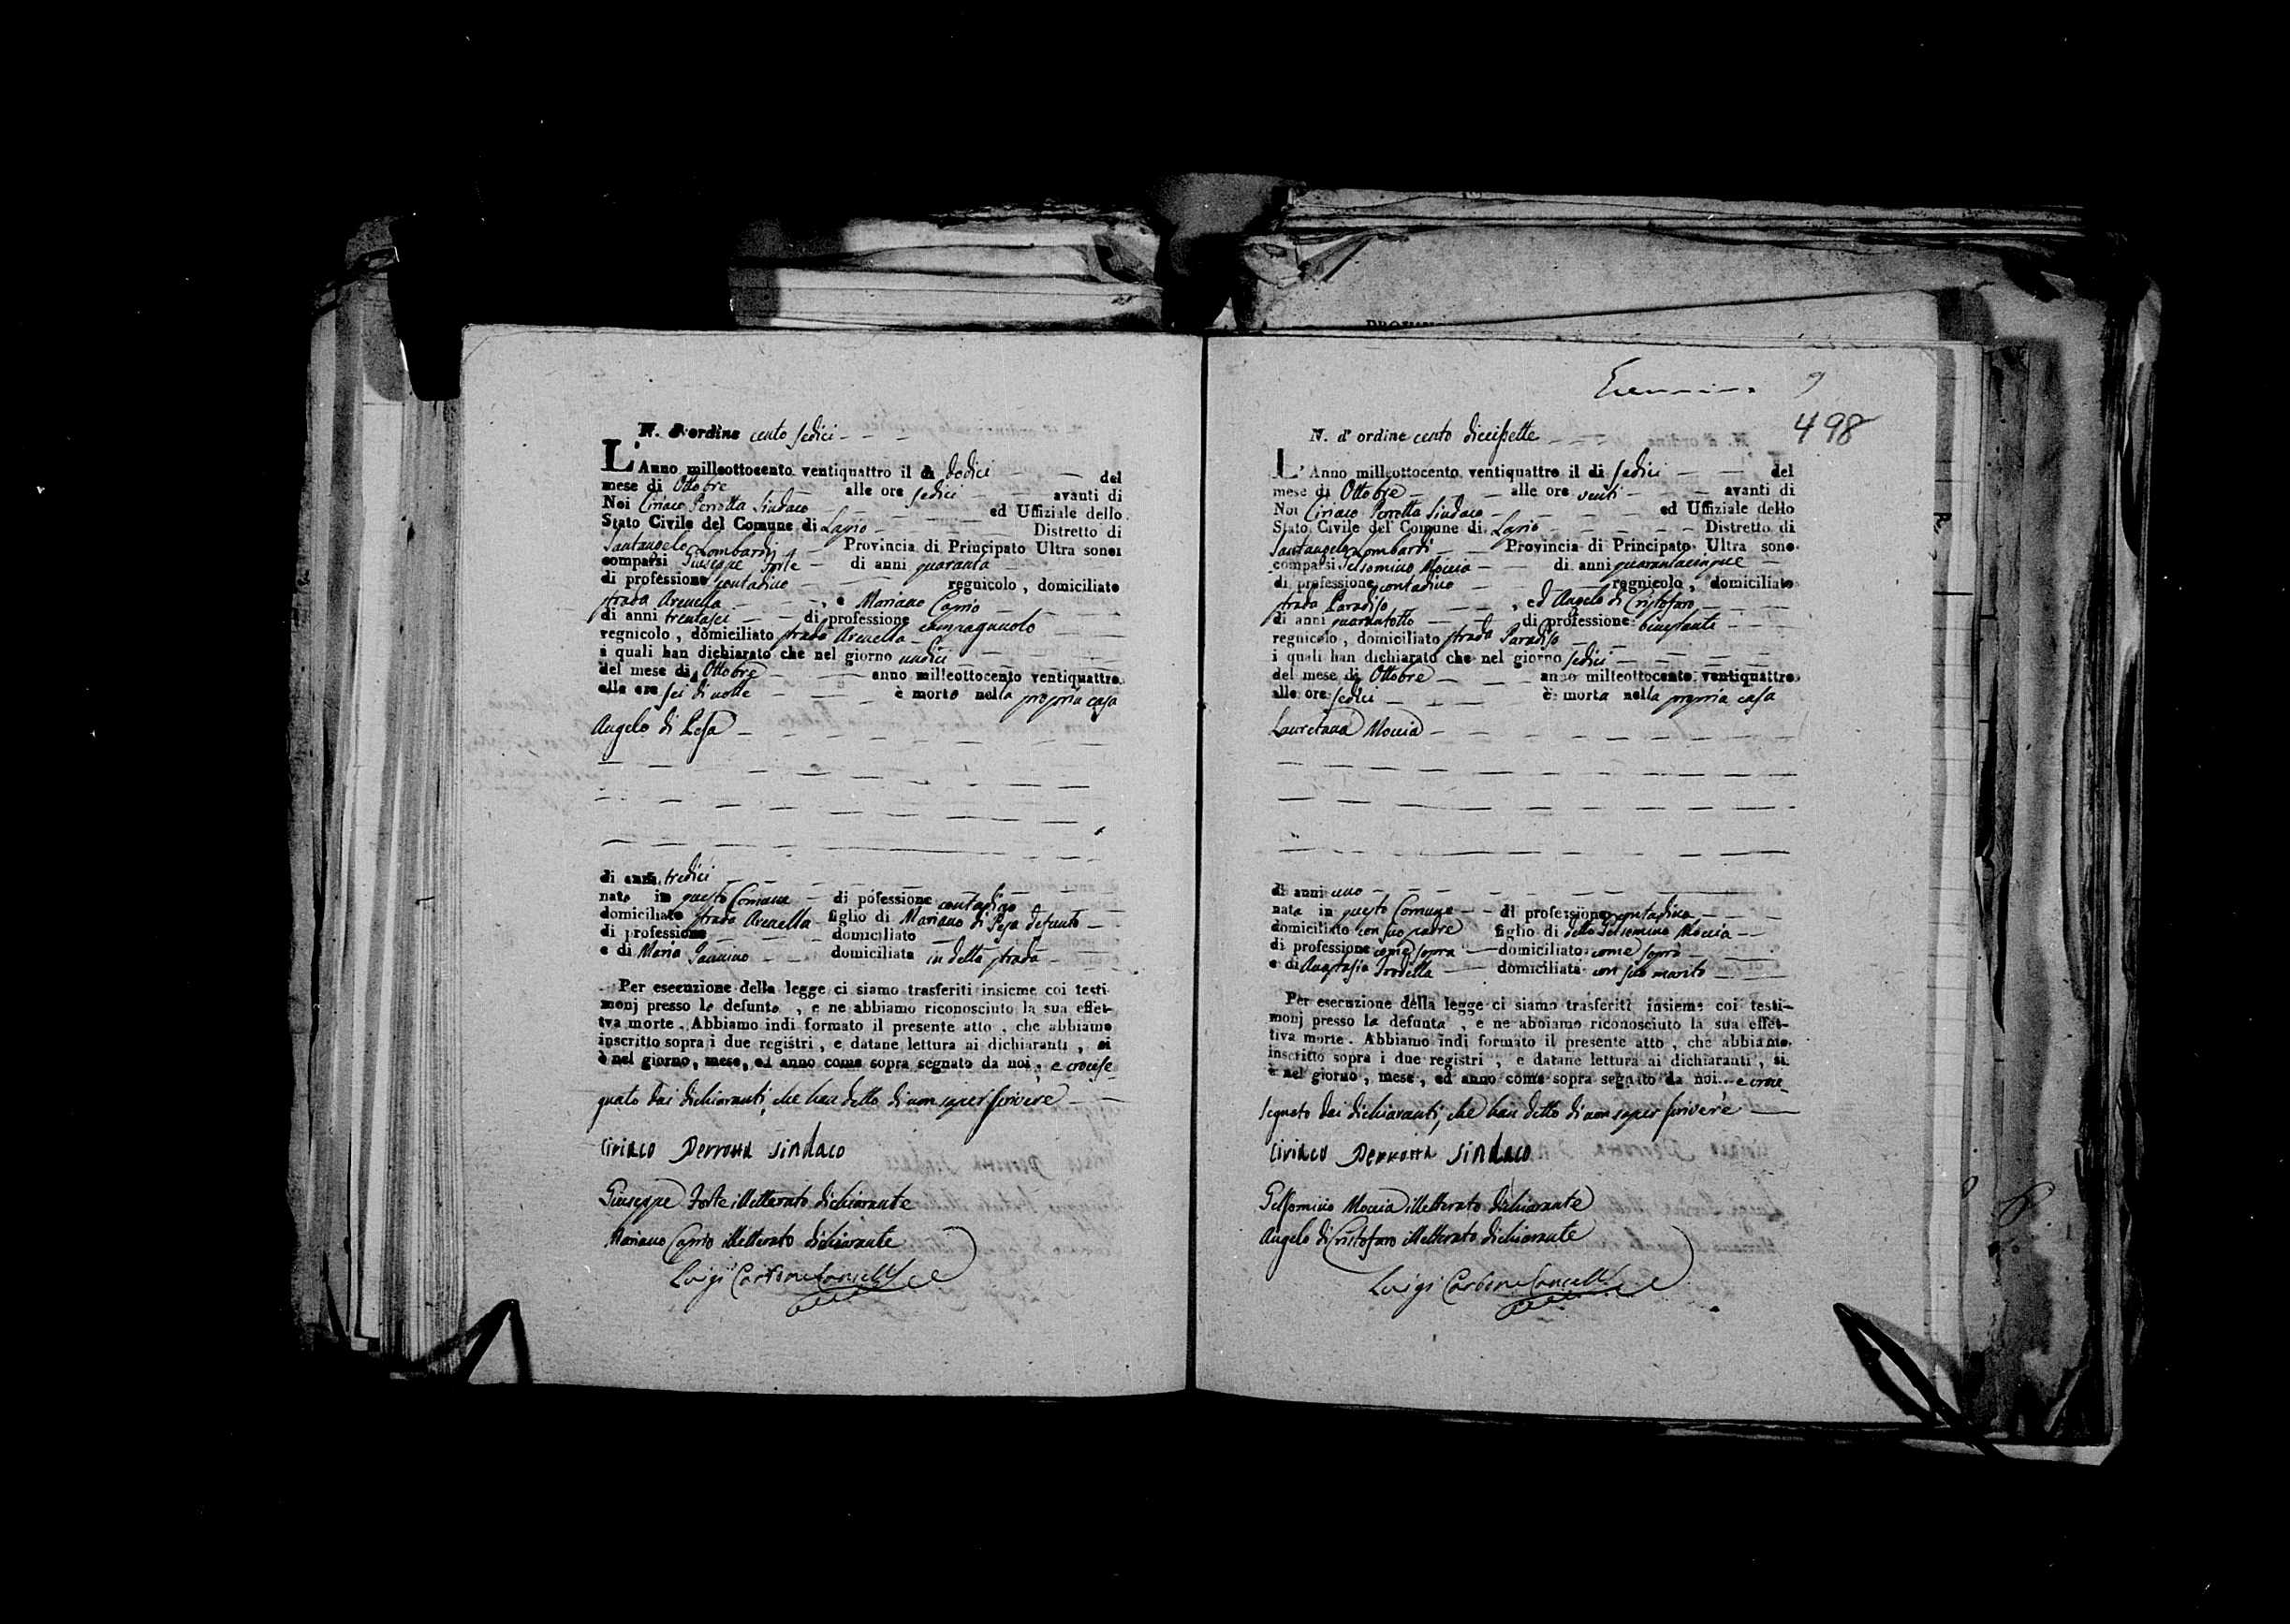 N. d'ordine cento sedici
L'Anno milleottocento ventiquattro il di dodici del
mese di Ottobre alle ore sedici avanti di
Noi Ciriaco Perrotta Sindaco ed Uffiziale dello
Stato Civile del Comune di Lapio Distretto di
Santangelo Lombardi Provincia di Principato Ultra sono
comparsi Giuseppe Forte di anni quaranta
di professione contadino regnicolo, domiciliato
strada Arenella, e Mariano Caprio
di anni trentasei di professione campagnuolo
regnicolo, domiciliato strada Arenella
i quali han dichiarato che nel giorno undici
del mese di Ottobre anno milleottocento ventiquattro
alle ore sei di notte è morto nella propria casa
Angelo di Pesa
di anni tredici
nato in questo Comune di pofessione contadino
domiciliato strada Arenella figlio di Mariano di Pesa defunto
di professione domiciliato
e di Maria domiciliata in detta strada
Per esecuzione della legge ci siamo trasferiti insieme coi testi
monj presso lo defunto, e ne abbiamo riconosciuto la sua effet-
tva morte. Abbiamo indi formato il presente atto, che abbiamo
inscritto sopra i due registri, e datane lettura ai dichiaranti, si
è nel giorno, mese, ed anno come sopra segnato da noi, e crocise
gnato dai dichiaranti, che han detto di non saper scrivere
Ciriaco Perrotta Sindaco
Giuseppe Forte illetterato dichiarante
Mariano Caprio illetterato dichiarante
Luigi Carbone Cancell
498
N. d'ordine cento diecisette
L'Anno milleottocento ventiquattro il di sedici del
mese di Ottobre alle ore venti avanti di
Noi Ciriaco Perrotta Sindaco ed Uffiziale dello
Stato Civile del Comune di Lapio Distretto di
Santangelo Lombardi Provincia di Principato Ultra sono
comparsi Gelsomino Moccia di anni quarantacinque
di professione contadino regnicolo, domiciliato
strada Paradiso, ed Angelo di Cristofaro
di anni quarantotto di professione benestante
regnicolo, domiciliato strada Paradiso
i quali han dichiarato che nel giorno sedici
del mese di Ottobre anno milleottocento ventiquattro
alle ore sedici è morta nella propria casa
Lauretana Moccia
di anni uno
nata in questo Comune di professione contadina
domiciliato con suo padre figlio di detto Gelsomino Moccia
di professione come sopra domiciliato come sopra
e di Anastasia domiciliata con suo marito
Per esecuzione della legge ci siamo trasferiti insieme coi testi-
monj presso la defunta, e ne abbiamo riconosciuto la sua effet-
tiva morte. Abbiamo indi formato il presente atto, che abbiamo
inscritto sopra i due registri, e datane lettura ai dichiaranti, si
è nel giorno, mese, ed anno come sopra segnato da noi e croci-
segnato dai dichiaranti, che han detto di non saper scrivere
Ciriaco Perrotta Sindaco
Gelsomino Moccia illetterato dichiarante
Angelo di Cristofaro illetterato dichiarante
Luigi Carbone Cancell